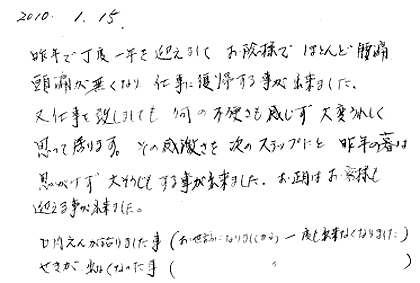 2010. 1. 15.
昨年で丁度一年を迎えまして お陰様で ほとんど腰痛
頭痛が無くなり 仕事に復帰する事が出来ました。
又仕事を致しましても 何の不便さも感じず 大変うれしく
思って居ります。その感激さを次のステップにと 昨年の暮は
思いがけず 大そうじもする事が出来ました。お正月はお客様も
迎える事が出来ました。
口内えんが治りました事 (お世話になりましてから 一度も出来なくなりました)
せきが 出なくなった事 ( 〃 )